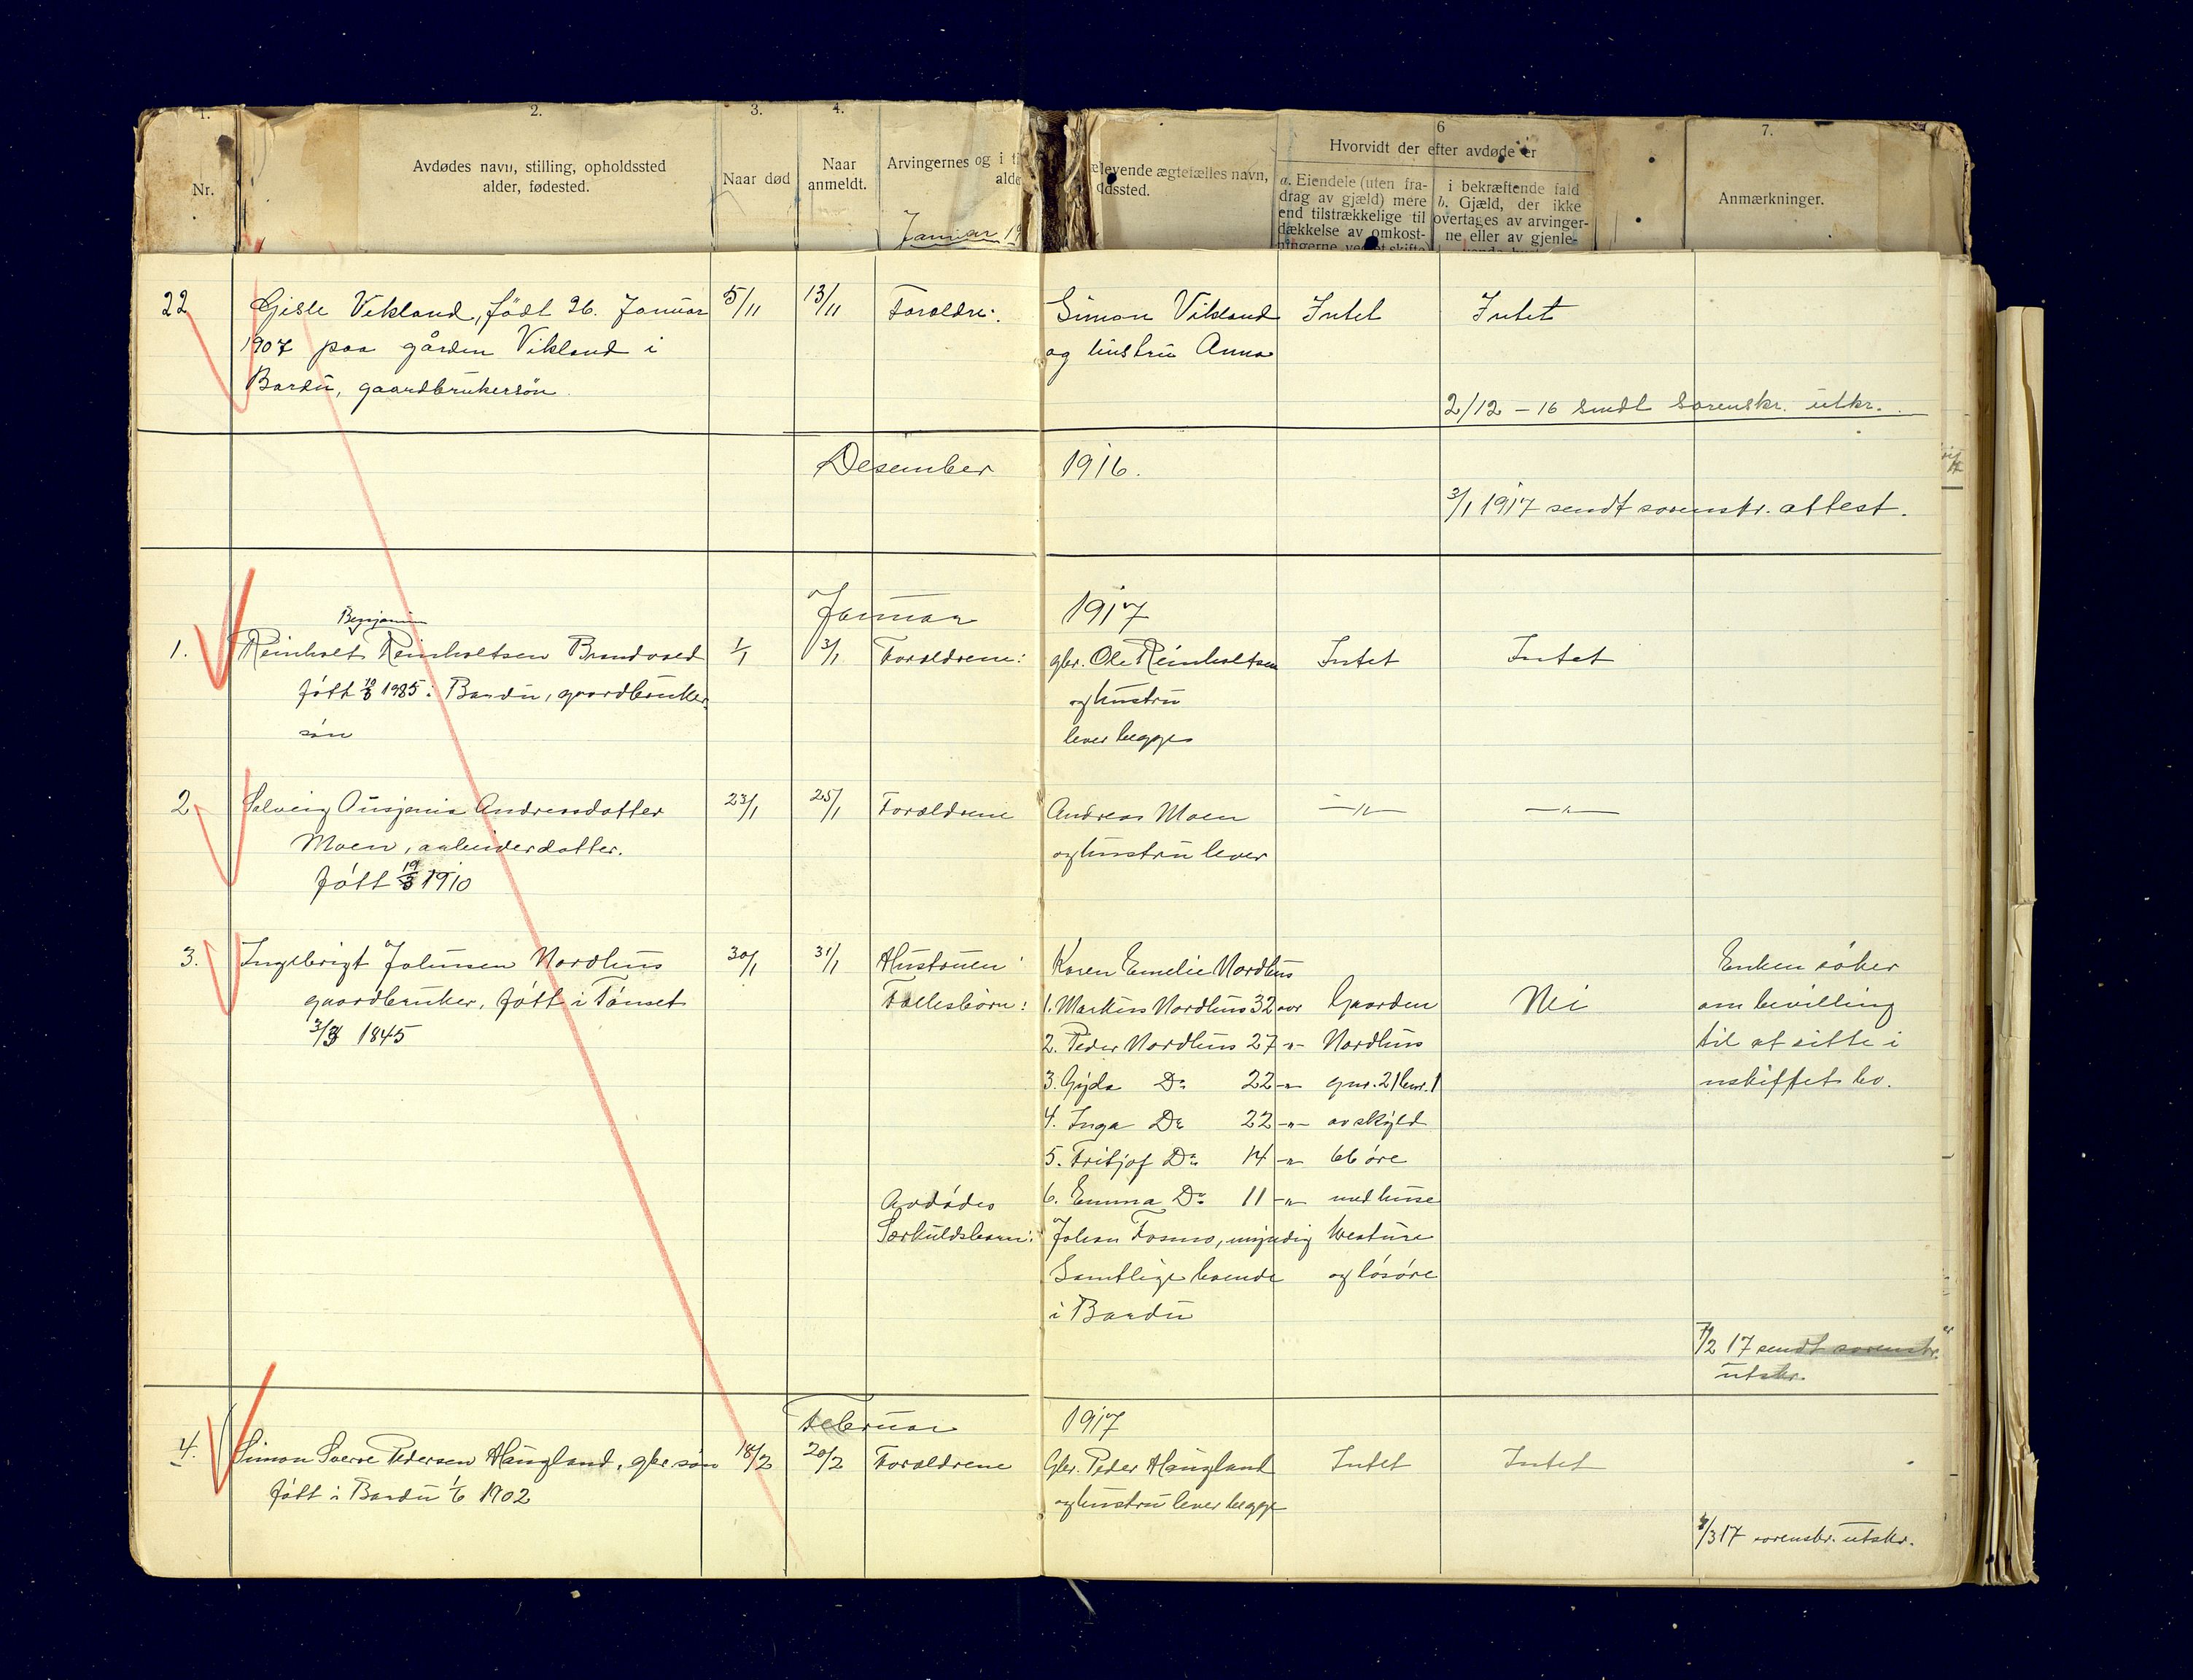 1. 2. 3. 4. 6 7.
Nr.
Avdødes navn, stilling, opholdssted
alder, fødested.
Naar død
Naar
anmeldt.
Arvingernes og i
alde
Januar 19
levende ægtefælles navn,
Hvorvidt der efter avdøde er
a. Eiendele (uten fra-
drag av gjæld) mere
end tilstrækkelige til
dækkelse av omkost-
ningerne ved et skifte
i bekræftende fald
b. Gjæld, der ikke
overtages av arvinger-
ne eller av gjenle-
Anmærkninger.
22 Gisle Vikland, født 26. Januar 5/11 13/11 Foroldre: Simon Vikland Intet Intet
1907 paa gården Vikland i og hustru Anna
Bardu, gaardbrukersøn
2/12 - 16 sendt sorenskr. utskr.
Desember 1916.
3/1 1917 sendt sorenskr. attest.
Januar 1917
Benjamin
1. Reinholt Reinholtsen Brandvold 1/1 3/1 Foroldrene: gbr. Ole Reinholtsen Intet Intet
født 1985 i Bardu, gaardbruker- og hustru
søn lever begge
2. Solveig Andreasdatter 23/1 25/1 Foroldrene Andreas Moen -"- -"-
Moen, arbeiderdatter. og hustru lever
født 19/3 1910
3. Ingebrigt Johnsen Nordhus 30/1 31/1 Hustruen: Karen Emelie Nordhus Enken söker
gaardbruker, født i Tönset Fællesbörn: 1. Markus Nordhus 32 aar Gaarden Nei om bevilling
1845 2. Peder Nordhus 27 -"- Nordhus til at sitte i
3. Gyda Do 22 -"- gnr. 21 bnr. 1 uskiftet bo.
4. Inga Do 22 -"- av skyld
5. Fritjof Do 14 -"- 66 öre
Avdødes 6. Emma Do 11 -"- med huse
Særkuldsbarn: Johan Fosmo, myndig kreature
Samtlige boende og lösöre
i Bardu
7/2 17 sendt sorenskr.
utskr.
Februar 1917
4. Simon Sverre Pedersen Haugland, gbr. søn 18/2 20/2 Foroldrene Gbr. Peder Haugland Intet Intet
født i Bardu 1/6 1902 og hustru lever begge
/3 17 sorenskr. utskr.